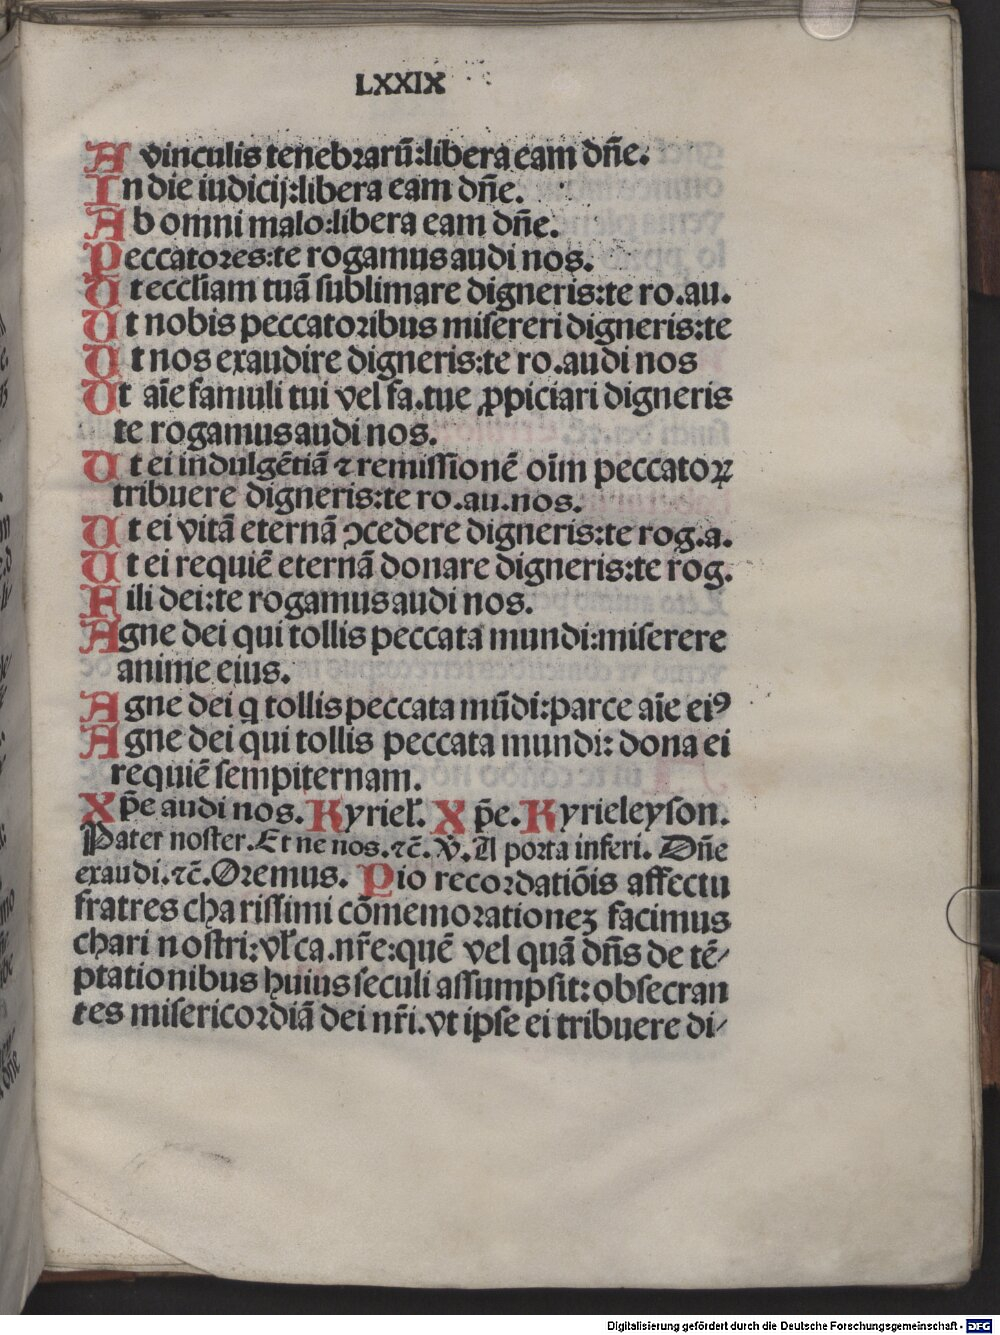 LXXIX
A vinculis tenebꝛarū:libera eam dn̄e.
In die iudicij:libera eam dn̄e.
Ab omni malo:libera eam dn̄e.
Peccatoꝛes:te rogamus audi nos.
Ut eccl̄iam tuā ſublimare digneris:te ro.au.
Ut nobis peccatoꝛibus miſereri digneris:te
Ut nos exaudire digneris:te ro.audi nos
Ut aīe famuli tui vel fa.tue ꝓpiciari digneris
te rogamus audi nos.
Ut ei indulgētiā ⁊ remiſſionē oīm peccatoꝝ
tribuere digneris:te ro.au.nos.
Ut ei vitā eternā ↄcedere digneris:te rog.a.
Ut ei requiē eternā donare digneris:te rog.
Fili dei:te rogamus audi nos.
Agne dei qui tollis peccata mundi:miſerere
anime eius.
Agne dei q tollis peccata mūdi:parce aīe eiꝰ
Agne dei qui tollis peccata mundi: dona ei
requiē ſempiternam.
Xp̄e audi nos. Kyriel̄. Xp̄e. Kyrieleyſon.
Pater noſter. Et ne nos.⁊c̄. V̄. A poꝛta inferi. Dn̄e
exaudi.⁊c̄. Oꝛemus. Pio recoꝛdatiōis affectu
fratres chariſſimi cōmemoꝛationeꝫ facimus
chari noſtri:vl̄ ca.nr̄e:quē vel quā dn̄s de tē⸗
ptationibus huius ſeculi aſſumpſit:obſecran
tes miſericoꝛdiā dei nr̄i.vt ipſe ei tribuere di⸗
Digitalisierung gefördert durch die Deutsche Forschungsgemeinschaft - DFG